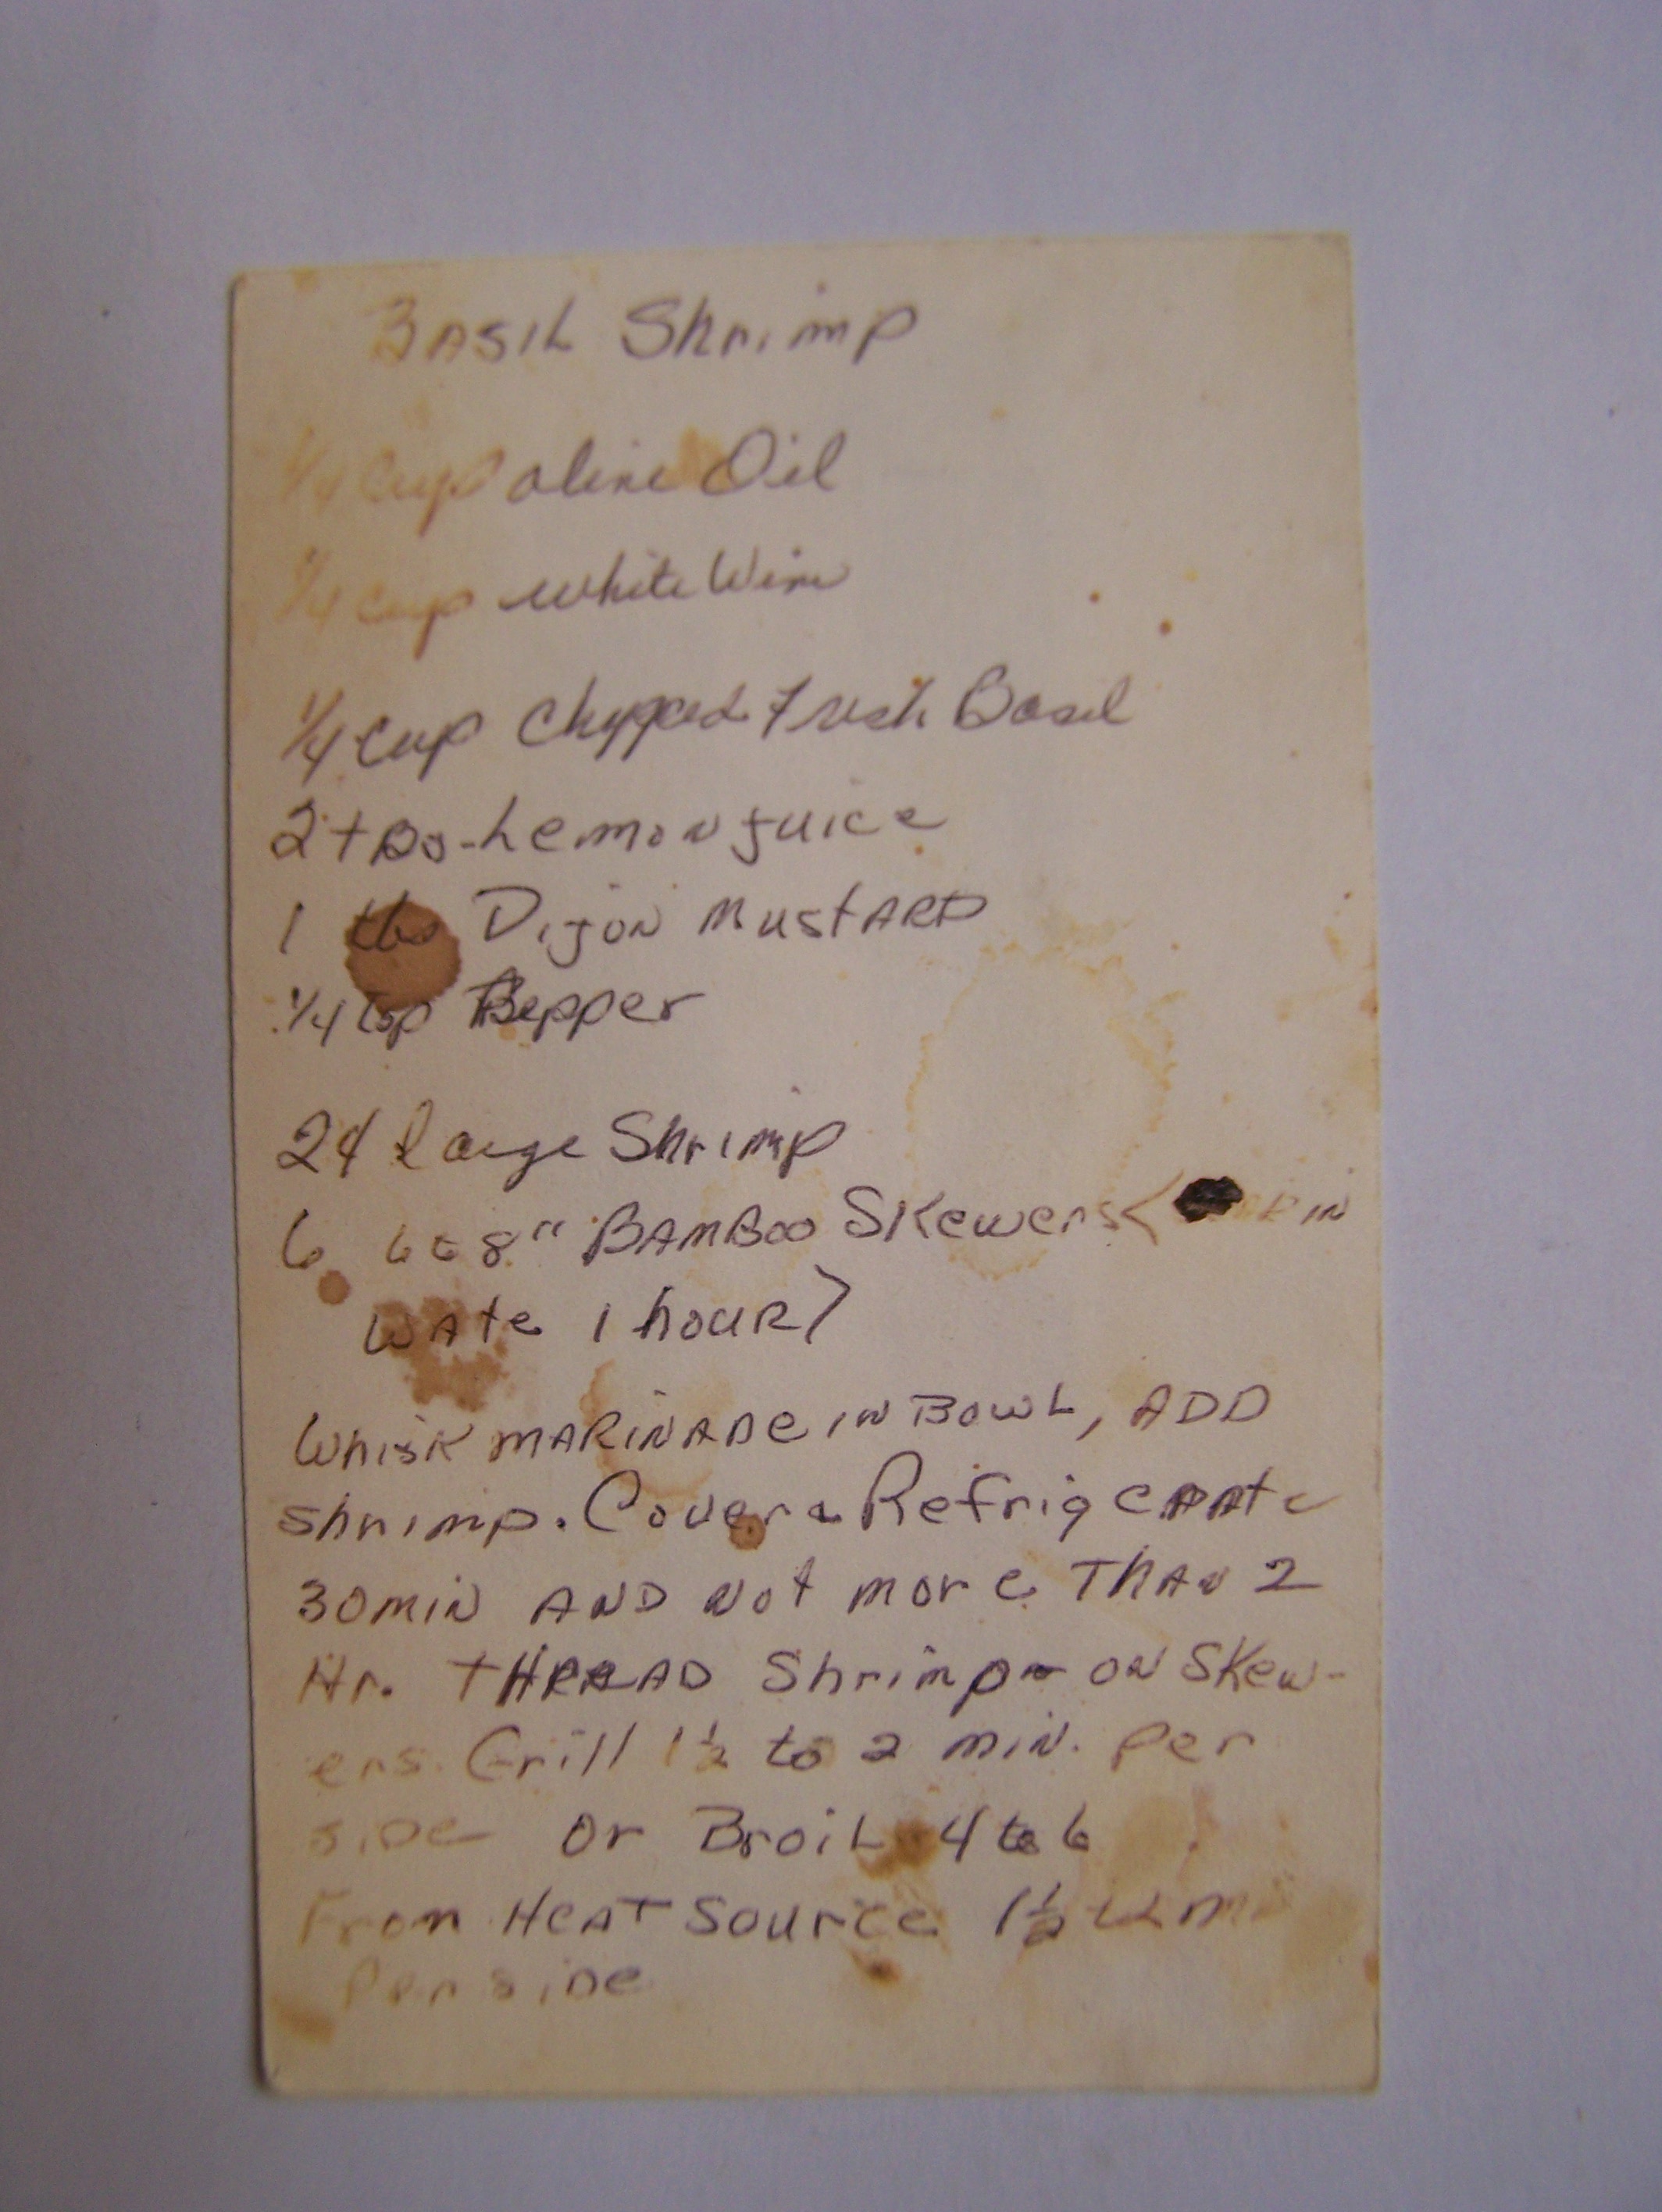 BASIL Shrimp
1/4 Cup olive Oil
1/4 cup white Wine
1/4 cup chopped fresh Basil
2 tbs - Lemon juice
1 tbs Dijon MustARD
1/4 tsp Pepper
24 large Shrimp
6 6 to 8" BAMBOO SKewers (in
WAte 1 hour)
Whisk MARINADe IN BOWL, ADD
shrimp. Cover & Refrigerate
30 MIN AND Not more ThAN 2
Hr. tHReAD Shrimp on SKew-
ers. Grill 1 1/2 to 2 MIN. Per
SiDe or BroiL 4 to 6
From HeAT Source 1 1/2 to 2
Per siDe